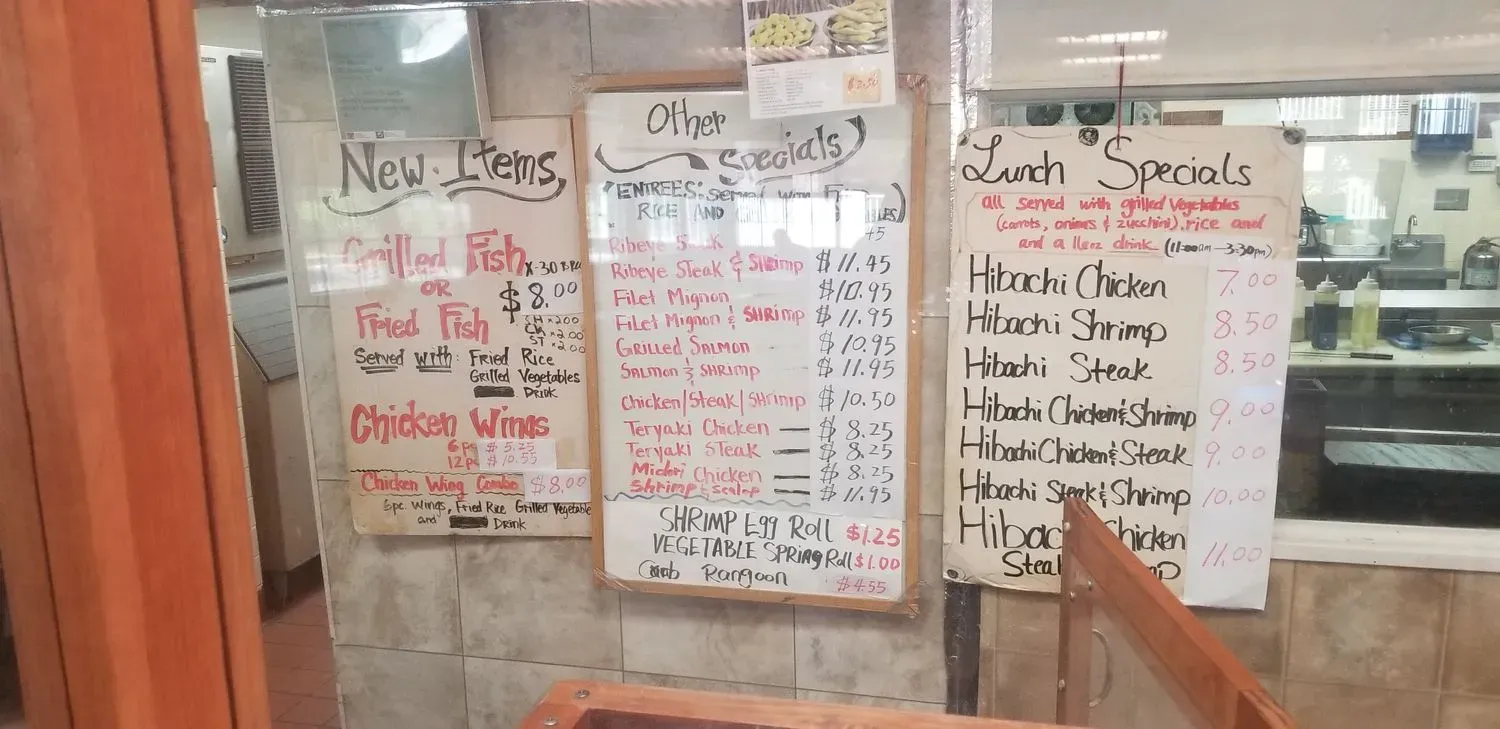 New Items
Grilled Fish
OR
$8.00
Fried Fish
CH x 2.00
ST x 2.00
Served with: Fried Rice
Grilled Vegetables
Drink
Chicken Wings
6 pc $5.25
12 pc $10.55
Chicken Wing Combo $8.00
6pc. Wings, Fried Rice Grilled Vegetable
and Drink
$2.50
Other
Specials
(ENTREES: Served with
RICE AND
Ribeye
Ribeye Steak & Shrimp $11.45
Filet Mignon $10.95
Filet Mignon & SHRimp $11.95
GRilled SAlmoN $10.95
SAlmoN & SHRimp $11.95
Chicken/Steak/SHrimp $10.50
Teryaki Chicken — $8.25
Teryaki STeak — $8.25
Midori Chicken — $8.25
Shrimp & Scalop — $11.95
SHRIMP Egg Roll $1.25
VEGETABLE SPRing Roll $1.00
Crab Rangoon $4.55
Lunch Specials
all served with grilled Vegetables
(carrots, onions & zucchini), rice and
and a 16oz drink (11:00am - 3:30pm)
Hibachi Chicken 7.00
Hibachi Shrimp 8.50
Hibachi Steak 8.50
Hibachi Chicken & Shrimp 9.00
Hibachi Chicken & Steak 9.00
Hibachi Steak & Shrimp 10.00
Hibac Chicken
Steak 11.00